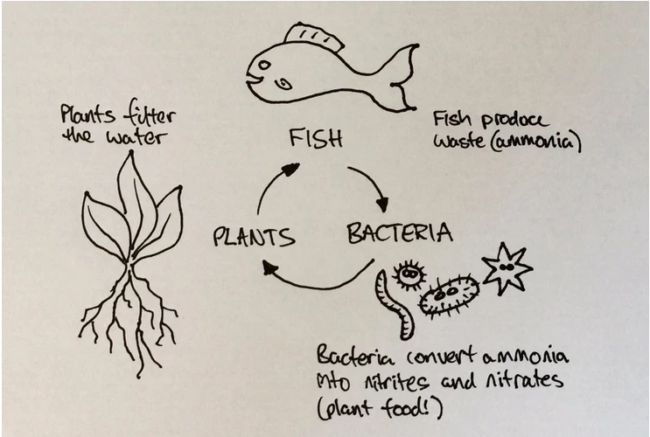 Plants filter
the water
FISH
Fish produce
waste (ammonia)
PLANTS
BACTERIA
Bacteria convert ammonia
into nitrites and nitrates
(plant food!)